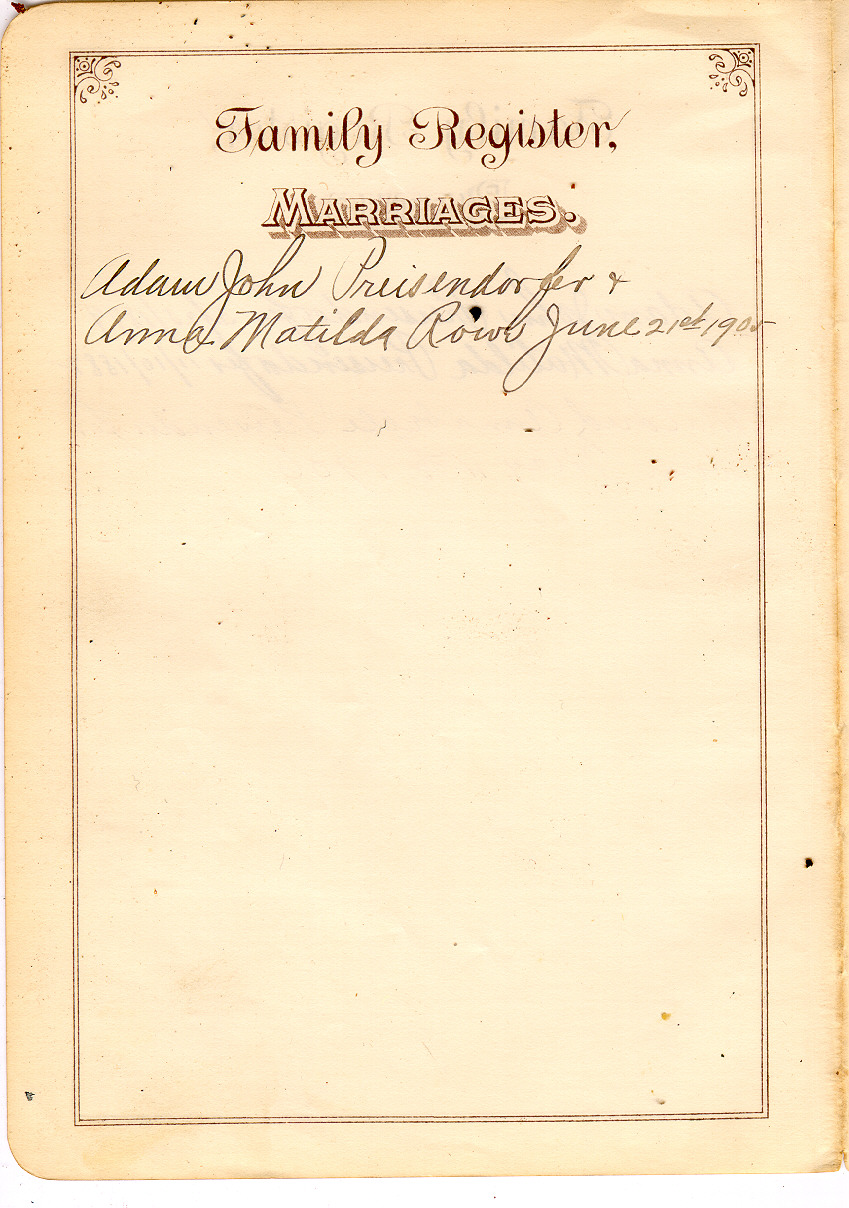 Family Register,
MARRIAGES.
Adam John Preisendorfer &
Anna Matilda Rowe June 21st, 1905